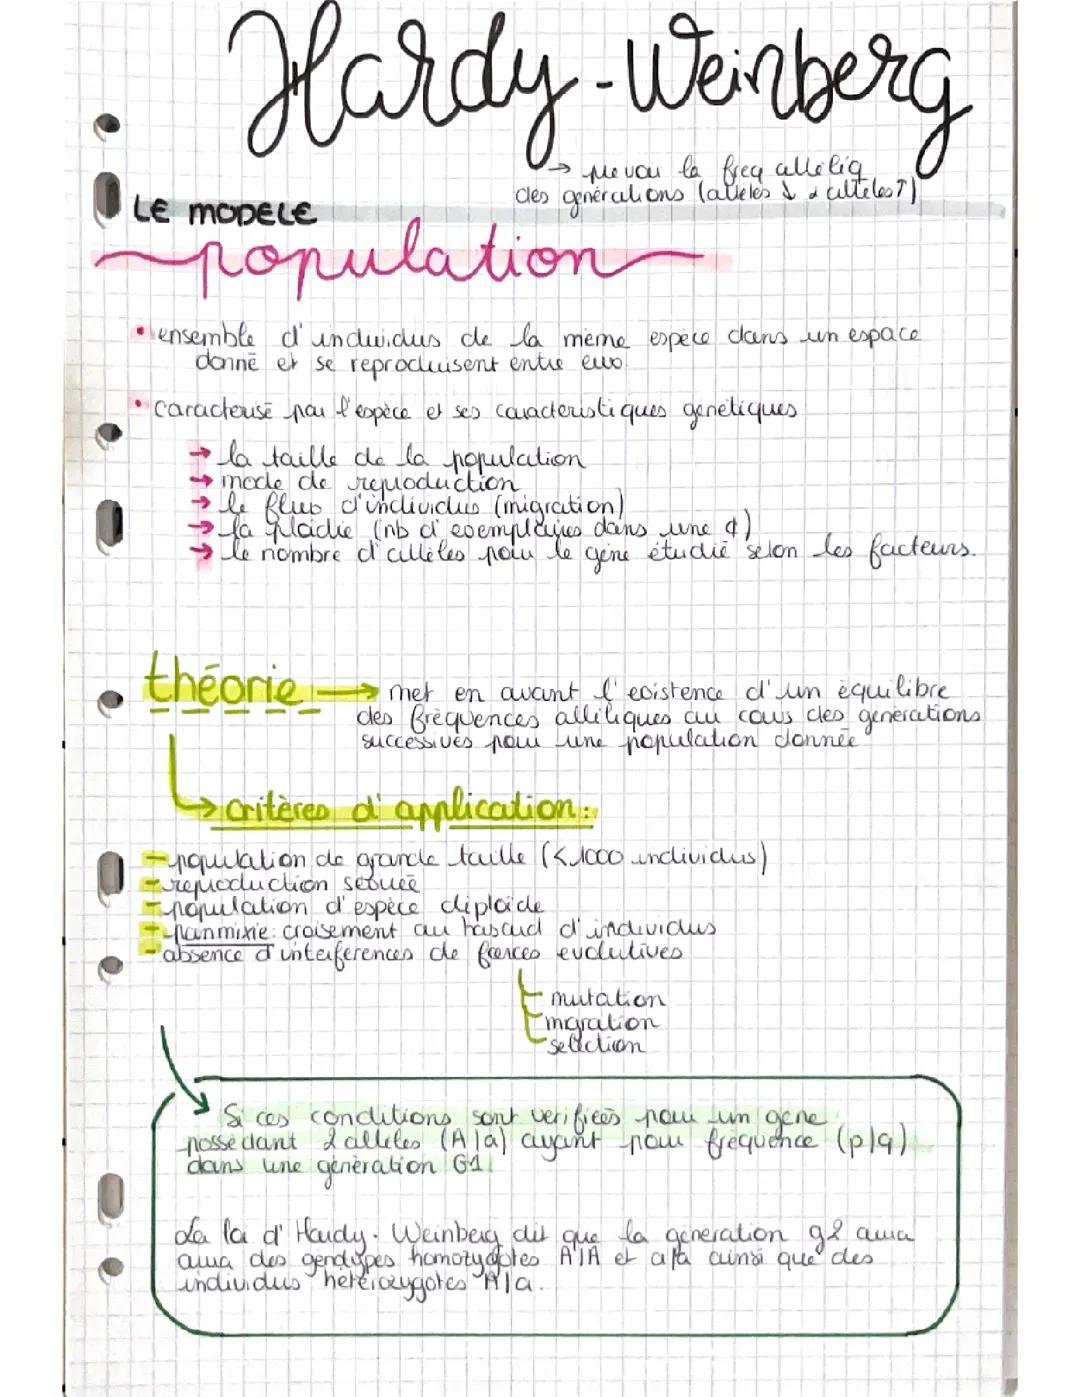 Hardy-Weinberg
→ prévoir la freq alléliq
des générations (allèles ↓ 2 allèles ↑)
LE MODELE
population
• ensemble d'individus de la même espèce dans un espace
donné et se reproduisent entre eux.
• caractérisé par l'espèce et ses caractéristiques génétiques
→ la taille de la population
→ mode de reproduction
→ le flux d'individus (migration)
→ la ploïdie (nb d'exemplaires dans une ¢)
→ le nombre d'allèles pour le gène étudié selon les facteurs.
théorie → met en avant l'existence d'un équilibre
des fréquences alléliques au cours des générations
successives pour une population donnée
→ critères d'application:
- population de grande taille (< 1000 individus)
- reproduction sexuée
- population d'espèce diploïde
- panmixie: croisement au hasard d'individus
- absence d'interférences de forces évolutives
- mutation
- migration
- sélection
→ Si ces conditions sont vérifiées pour un gène
possédant 2 allèles (A/a) ayant pour fréquence (p/q)
dans une génération G1
La loi d'Hardy-Weinberg dit que la génération g2 aura
aura des génotypes homozygotes A/A et a/a ainsi que des
individus hétérozygotes A/a.